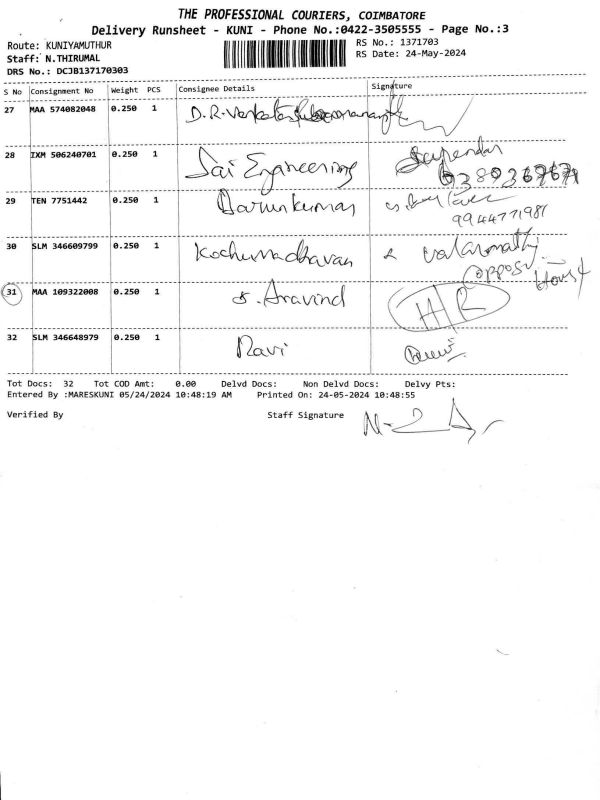 THE PROFESSIONAL COURIERS, COIMBATORE
Delivery Runsheet - KUNI - Phone No.:0422-3505555 - Page No.:3
Route: KUNIYAMUTHUR RS No.: 1371703
Staff: N.THIRUMAL RS Date: 24-May-2024
DRS No.: DCJB137170303
S No Consignment No Weight PCS Consignee Details Signature
27 MAA 574082048 0.250 1 D.R.
28 IXM 506240701 0.250 1 Sai Engineering
29 TEN 7751442 0.250 1 Darunkumar
9944771981
30 SLM 346609799 0.250 1 Kochumadhavan & Valarmathi
Opposit House
31 MAA 109322008 0.250 1 S. Aravind H/R
32 SLM 346648979 0.250 1 Ravi
Tot Docs: 32 Tot COD Amt: 0.00 Delvd Docs: Non Delvd Docs: Delvy Pts:
Entered By :MARESKUNI 05/24/2024 10:48:19 AM Printed On: 24-05-2024 10:48:55
Verified By Staff Signature